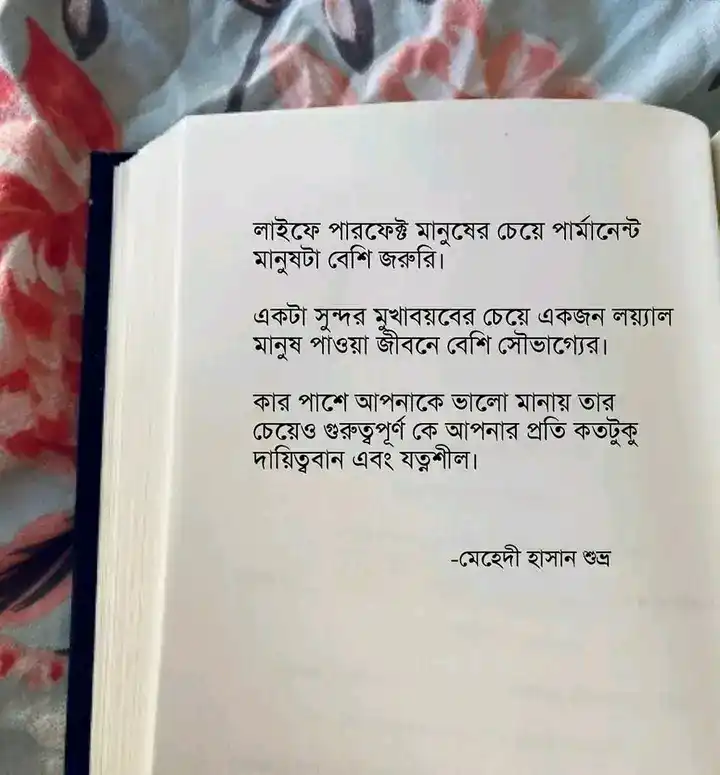 লাইফে পারফেক্ট মানুষের চেয়ে পার্মানেন্ট
মানুষটা বেশি জরুরি।
একটা সুন্দর মুখাবয়বের চেয়ে একজন লয়্যাল
মানুষ পাওয়া জীবনে বেশি সৌভাগ্যের।
কার পাশে আপনাকে ভালো মানায় তার
চেয়েও গুরুত্বপূর্ণ কে আপনার প্রতি কতটুকু
দায়িত্ববান এবং যত্নশীল।
-মেহেদী হাসান শুভ্র